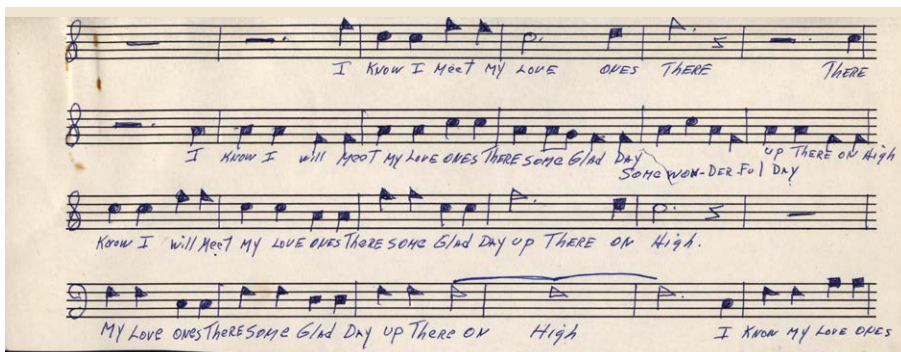 I Know I Meet My Love ones There There
I Know I will Meet My Love ones There some Glad Day up There on High
Some Won-der-ful Day
Know I will Meet My Love ones There some Glad Day up There on High.
My Love ones There some Glad Day up There on High I Know My Love ones